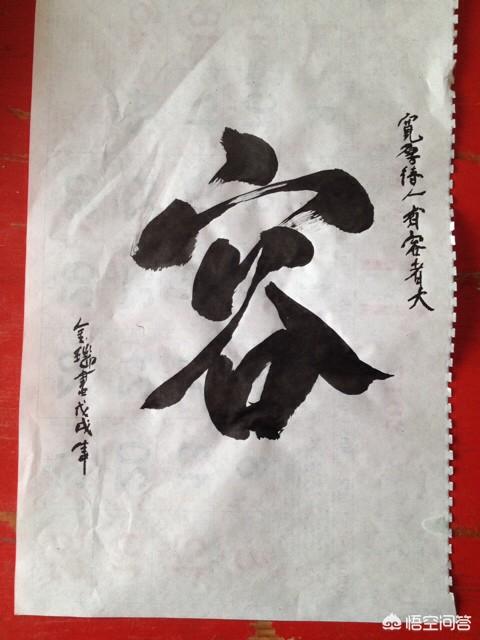 寬厚待人有容者大
容
金瓅書戊戌年
悟空问答